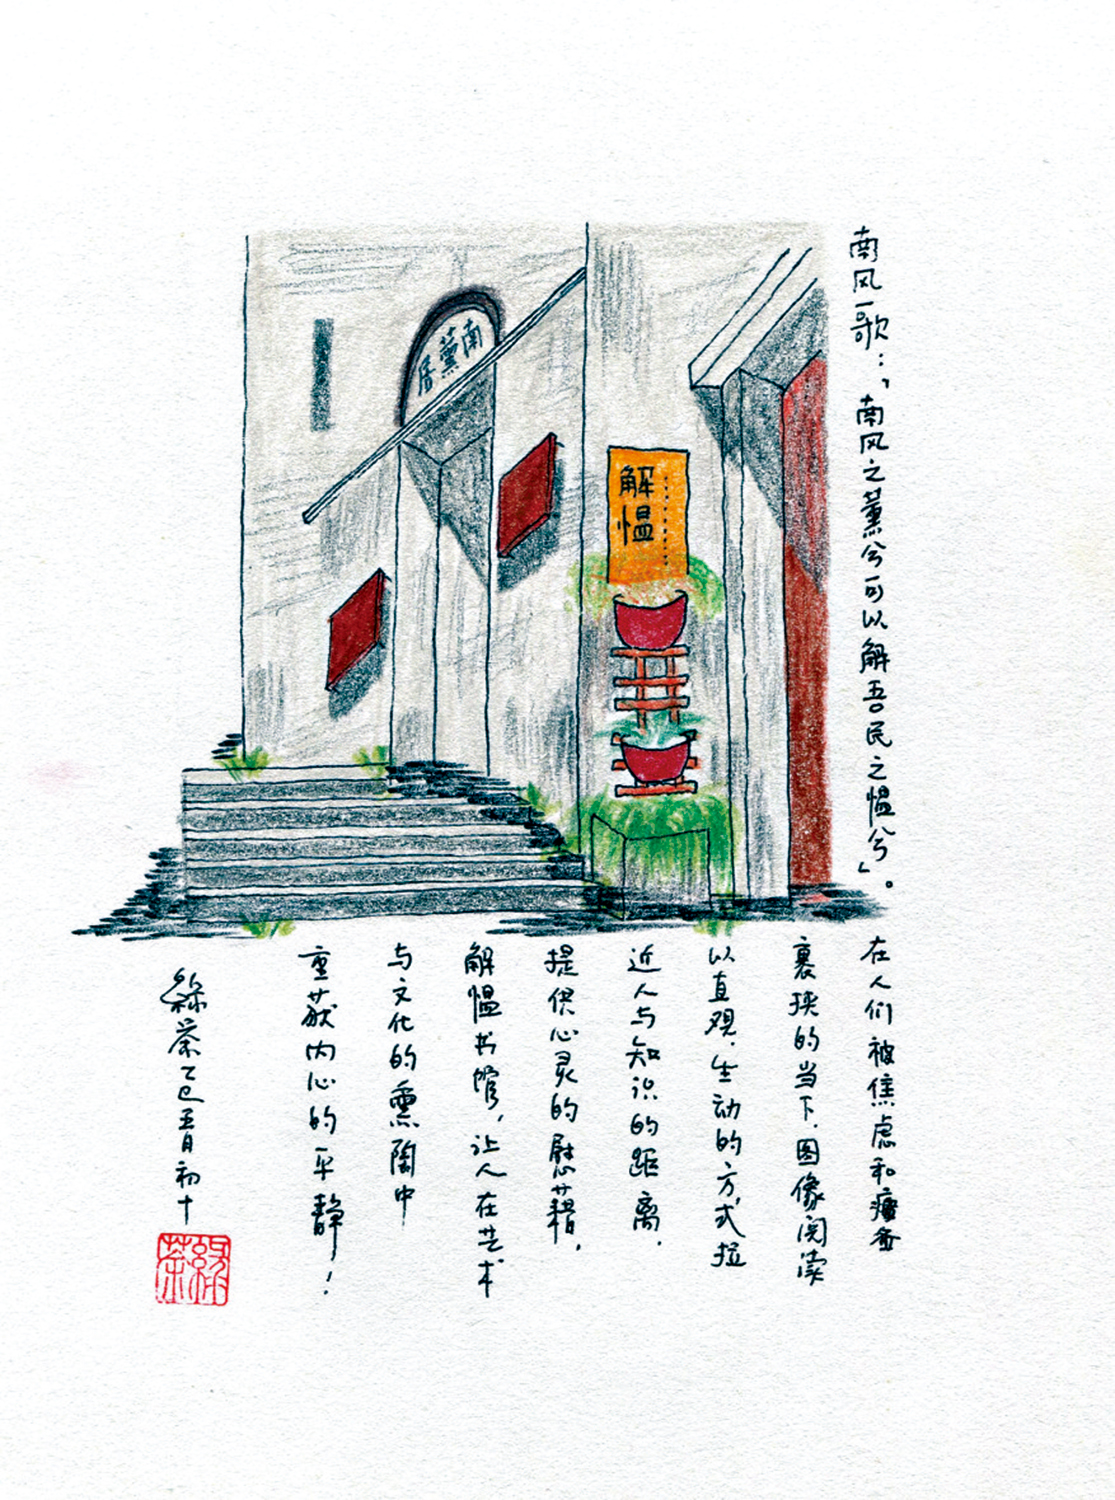 南风歌：「南风之薰兮可以解吾民之愠兮」。
南薰居
解愠
在人们被焦虑和疲惫
裹挟的当下，图像阅读
以直观、生动的方式拉
近人与知识的距离，
提供心灵的慰藉，
解愠书馆，让人在艺术
与文化的熏陶中
重获内心的平静！
綠茶乙巳五月初十
綠茶